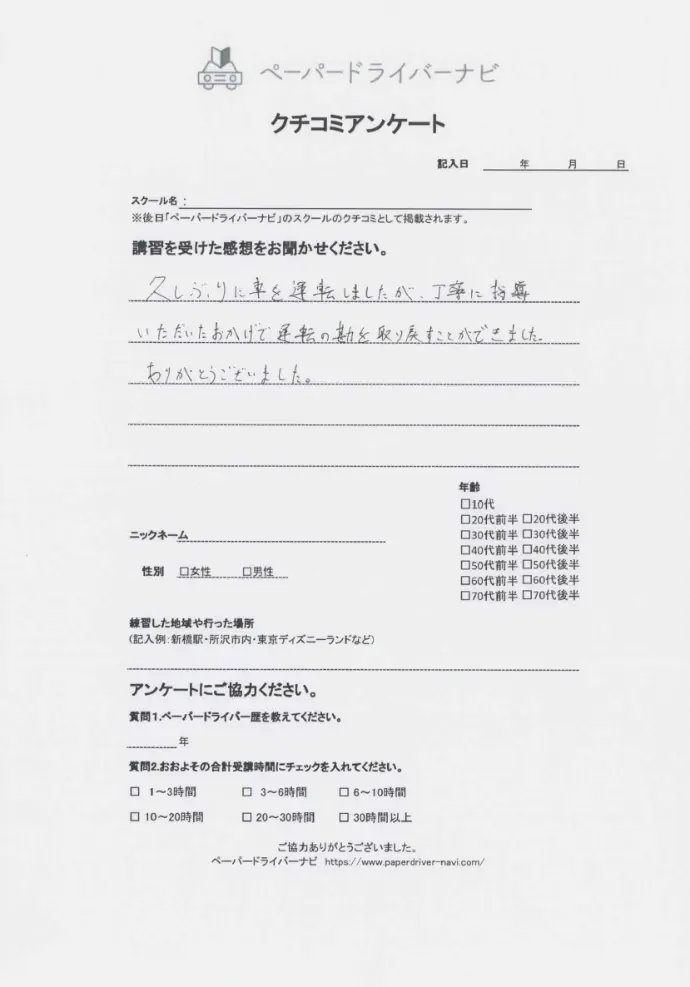 ペーパードライバーナビ
クチコミアンケート
記入日 年 月 日
スクール名：
※後日「ペーパードライバーナビ」のスクールのクチコミとして掲載されます。
講習を受けた感想をお聞かせください。
久しぶりに車を運転しましたが、丁寧に指導
いただいたおかげで運転の勘を取り戻すことができました。
ありがとうございました。
年齢
□10代
□20代前半 □20代後半
□30代前半 □30代後半
□40代前半 □40代後半
□50代前半 □50代後半
□60代前半 □60代後半
□70代前半 □70代後半
ニックネーム
性別 □女性 □男性
練習した地域や行った場所
（記入例：新橋駅・所沢市内・東京ディズニーランドなど）
アンケートにご協力ください。
質問1.ペーパードライバー歴を教えてください。
年
質問2.おおよその合計受講時間にチェックを入れてください。
□ 1～3時間 □ 3～6時間 □ 6～10時間
□ 10～20時間 □ 20～30時間 □ 30時間以上
ご協力ありがとうございました。
ペーパードライバーナビ https://www.paperdriver-navi.com/